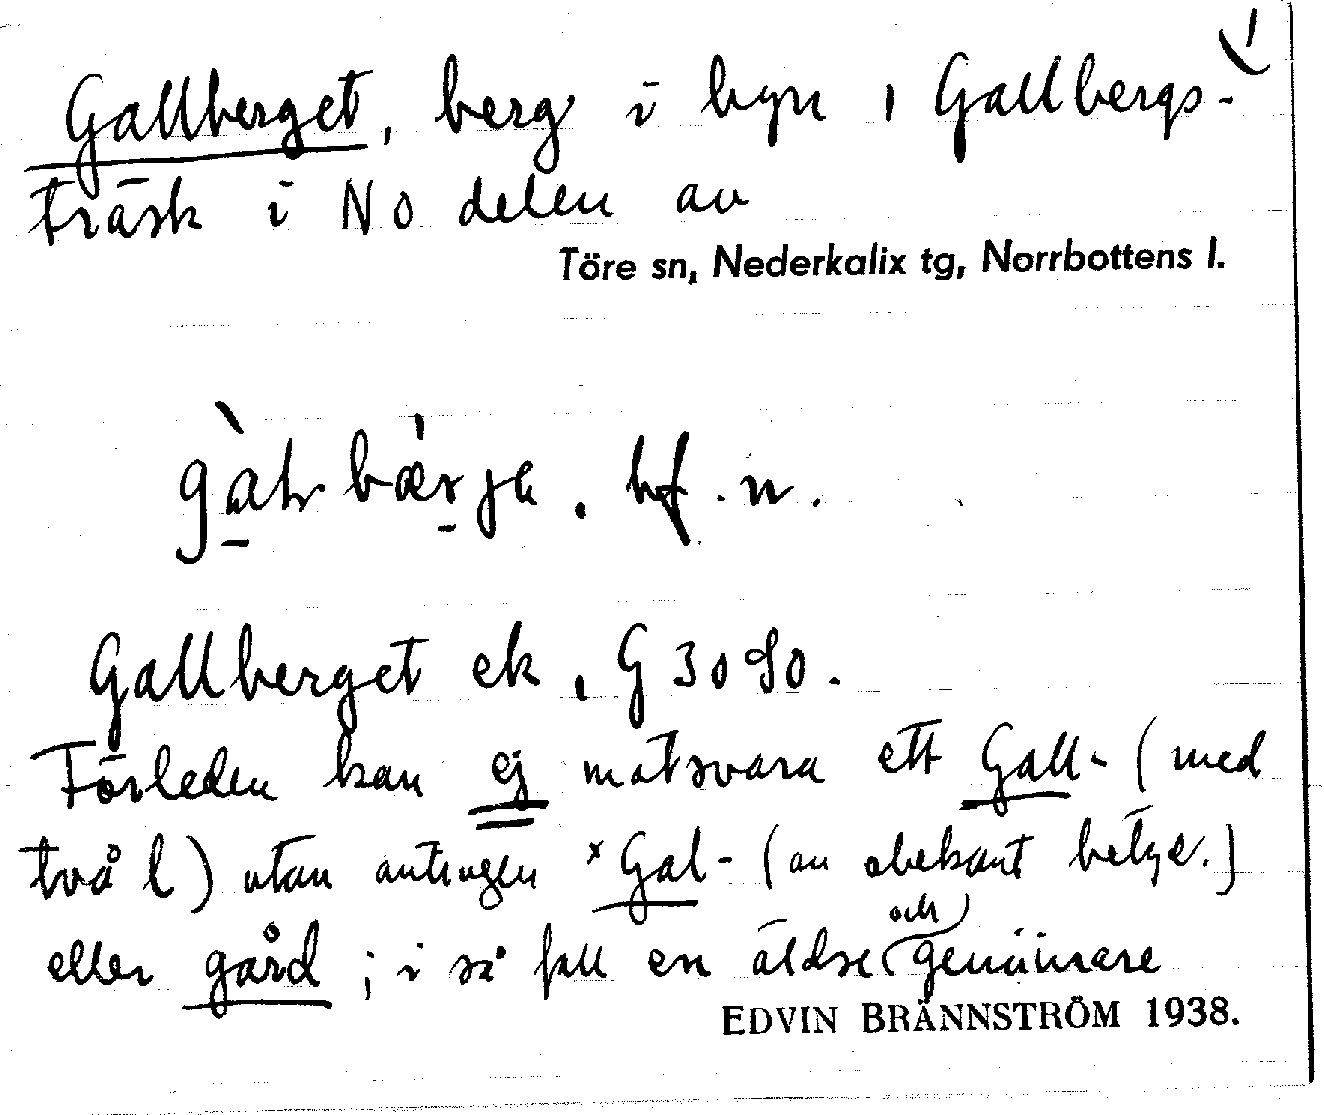 Gallberget, berg i byn Gallbergs-
träsk i NO delen av
Töre sn, Nederkalix tg, Norrbottens l.
bf. n.
Gallberget ek, G 3090.
Förleden kan ej motsvara ett Gall- (med
två l) utan antingen *Gal- (av obekant betyd.)
eller gård; i så fall en äldre (och) genuinare
EDVIN BRÄNNSTRÖM 1938.